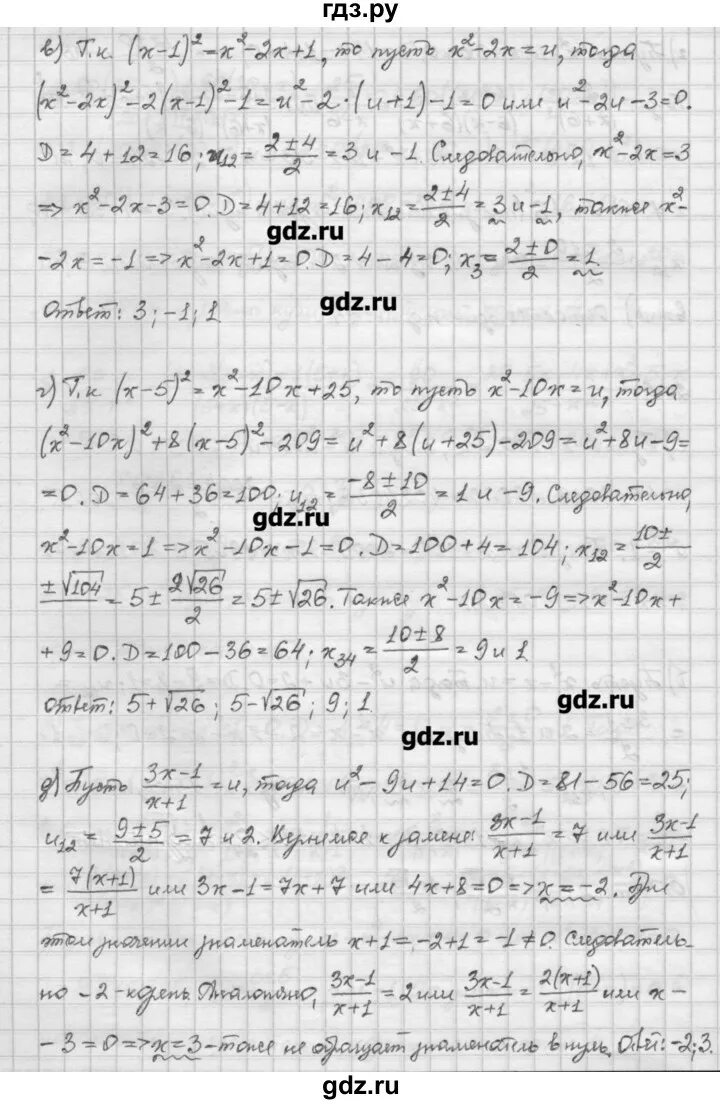 гдз.ру
в) Т.к. (x-1)²=x²-2x+1, то пусть x²-2x=u, тогда
(x²-2x)²-2(x-1)²-1=u²-2·(u+1)-1=0 или u²-2u-3=0.
D=4+12=16; u₁₂=(2±4)/2=3 и -1. Следовательно, x²-2x=3
=>x²-2x-3=0. D=4+12=16; x₁₂=(2±4)/2=3 и -1, также x²-
gdz.ru
-2x=-1=>x²-2x+1=0. D=4-4=0; x₃=(2±0)/2=1
gdz.ru
Ответ: 3; -1; 1.
г) Т.к (x-5)²=x²-10x+25, то пусть x²-10x=u, тогда
(x²-10x)²+8(x-5)²-209=u²+8(u+25)-209=u²+8u-9=
=0. D=64+36=100; u₁₂=(-8±10)/2=1 и -9. Следовательно,
gdz.ru
x²-10x=1=>x²-10x-1=0. D=100+4=104; x₁₂=(10±
±√104)/2=5±2√26/2=5±√26. Также x²-10x=-9=>x²-10x+
+9=0. D=100-36=64; x₃₄=(10±8)/2=9 и 1
Ответ: 5+√26; 5-√26; 9; 1.
gdz.ru
gdz.ru
д) Пусть (3x-1)/(x+1)=u, тогда u²-9u+14=0. D=81-56=25;
u₁₂=(9±5)/2=7 и 2. Вернемся к замене: (3x-1)/(x+1)=7 или (3x-1)/(x+1)
=7(x+1)/(x+1) или 3x-1=7x+7 или 4x+8=0=>x=-2. При
этом значении знаменатель x+1=-2+1=-1≠0. Следователь-
но -2-корень. Аналогично, (3x-1)/(x+1)=2 или (3x-1)/(x+1)=2(x+1)/(x+1) или x-
-3=0=>x=3-тоже не обращает знаменатель в нуль. Ответ: -2; 3.
gdz.ru